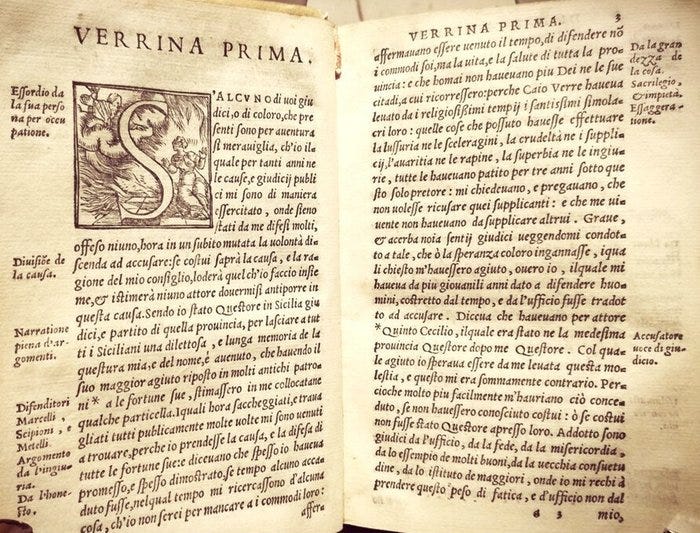 VERRINA PRIMA.
Essordio da
la sua perso
na per occu
patione.
S'ALCVNO di uoi giu
dici, o di coloro, che pre
senti sono per auentura
si merauiglia, ch'io il
quale per tanti anni ne
le cause, e giudicij publi
ci mi sono di maniera
essercitato, onde sieno
stati da me difesi molti,
offeso niuno, hora in un subito mutata la volontà di=
scenda ad accusare: se costui saprà la causa, e la ra=
gione del mio consiglio, loderà quel ch'io faccio insie
me, & istimerà niuno attore douermisi antiporre in
questa causa. Sendo io stato Questore in Sicilia giu
dici, e partito di quella prouincia, per lasciare a tut
ti i Siciliani una dilettosa, e lunga memoria de la
questura mia, e del nome, è auenuto, che hauendo il
suo maggior agiuto riposto in molti antichi patro=
ni * a le fortune sue, stimassero in me collocatane
qualche particella. I quali hora saccheggiati, e traua
gliati tutti publicamente molte uolte mi sono uenuti
a trouare, perche io prendesse la causa, e la difesa di
tutte le fortune sue: diceuano che spesso io haueua
promesso, e spesso dimostrato, se tempo alcuno acca=
duto fusse, nel qual tempo mi ricercassono d'alcuna
cosa, ch'io non serei per mancare a i commodi loro:
affer=
Diuisiōe de
la causa.
Narratione
piena d'ar=
gomenti.
Difenditori
Marcelli,
Scipioni, e
Metelli.
Argomento
da l'ingiu=
ria.
Da l'hone=
sto.
VERRINA PRIMA.
3
affermauano essere uenuto il tempo, di difendere nō
i commodi soi, ma la uita, e la salute di tutta la pro=
uincia: e che homai non haueuano piu Dei ne le sue
citadi, a cui ricorressero: perche Caio Verre haueua
leuato da i religiosissimi tempij i santissimi simola=
cri loro: quelle cose che possuto hauesse effettuare
la lussuria ne le sceleragini, la crudeltà ne i suppli=
cij, l'auaritia ne le rapine, la superbia ne le ingiu=
rie, tutte le haueuano patito per tre anni sotto que
sto solo pretore: mi chiedeuano, e pregauano, che
non uolesse ricusare quei supplicanti: e che me ui=
uente non haueuano da supplicare altrui. Graue,
& acerba noia sentij giudici ueggendomi condot=
to a tale, che ò la speranza coloro ingannasse, i qua
li chiesto m'hauessero agiuto, ouero io, ilquale mi
haueua da piu giouanili anni dato a difendere huo=
mini, costretto dal tempo, e da l'ufficio fusse tradot
to ad accusare. Diceua che haueuano per attore
* Quinto Cecilio, ilquale era stato ne la medesima
prouincia Questore dopo me Questore. Col qua=
le agiuto io speraua essere da me leuata questa mo=
lestia, e questo mi era sommamente contrario. Per=
cioche molto piu facilmente m'hauriano ciò conce=
duto, se non hauessero conosciuto costui: ò se costui
non fusse stato Questore apresso loro. Addotto sono
giudici da l'ufficio, da la fede, da la misericordia,
da lo essempio de molti buoni, da la uecchia consuetu
dine, da lo istituto de maggiori, onde io mi rechi à
prendere questo peso di fatica, e d'ufficio non dal
mio,
Da la gran
dezza de
la cosa.
Sacrilegio,
& impietà.
Essaggera=
tione.
Accusatore
uoce di giu=
dicio.